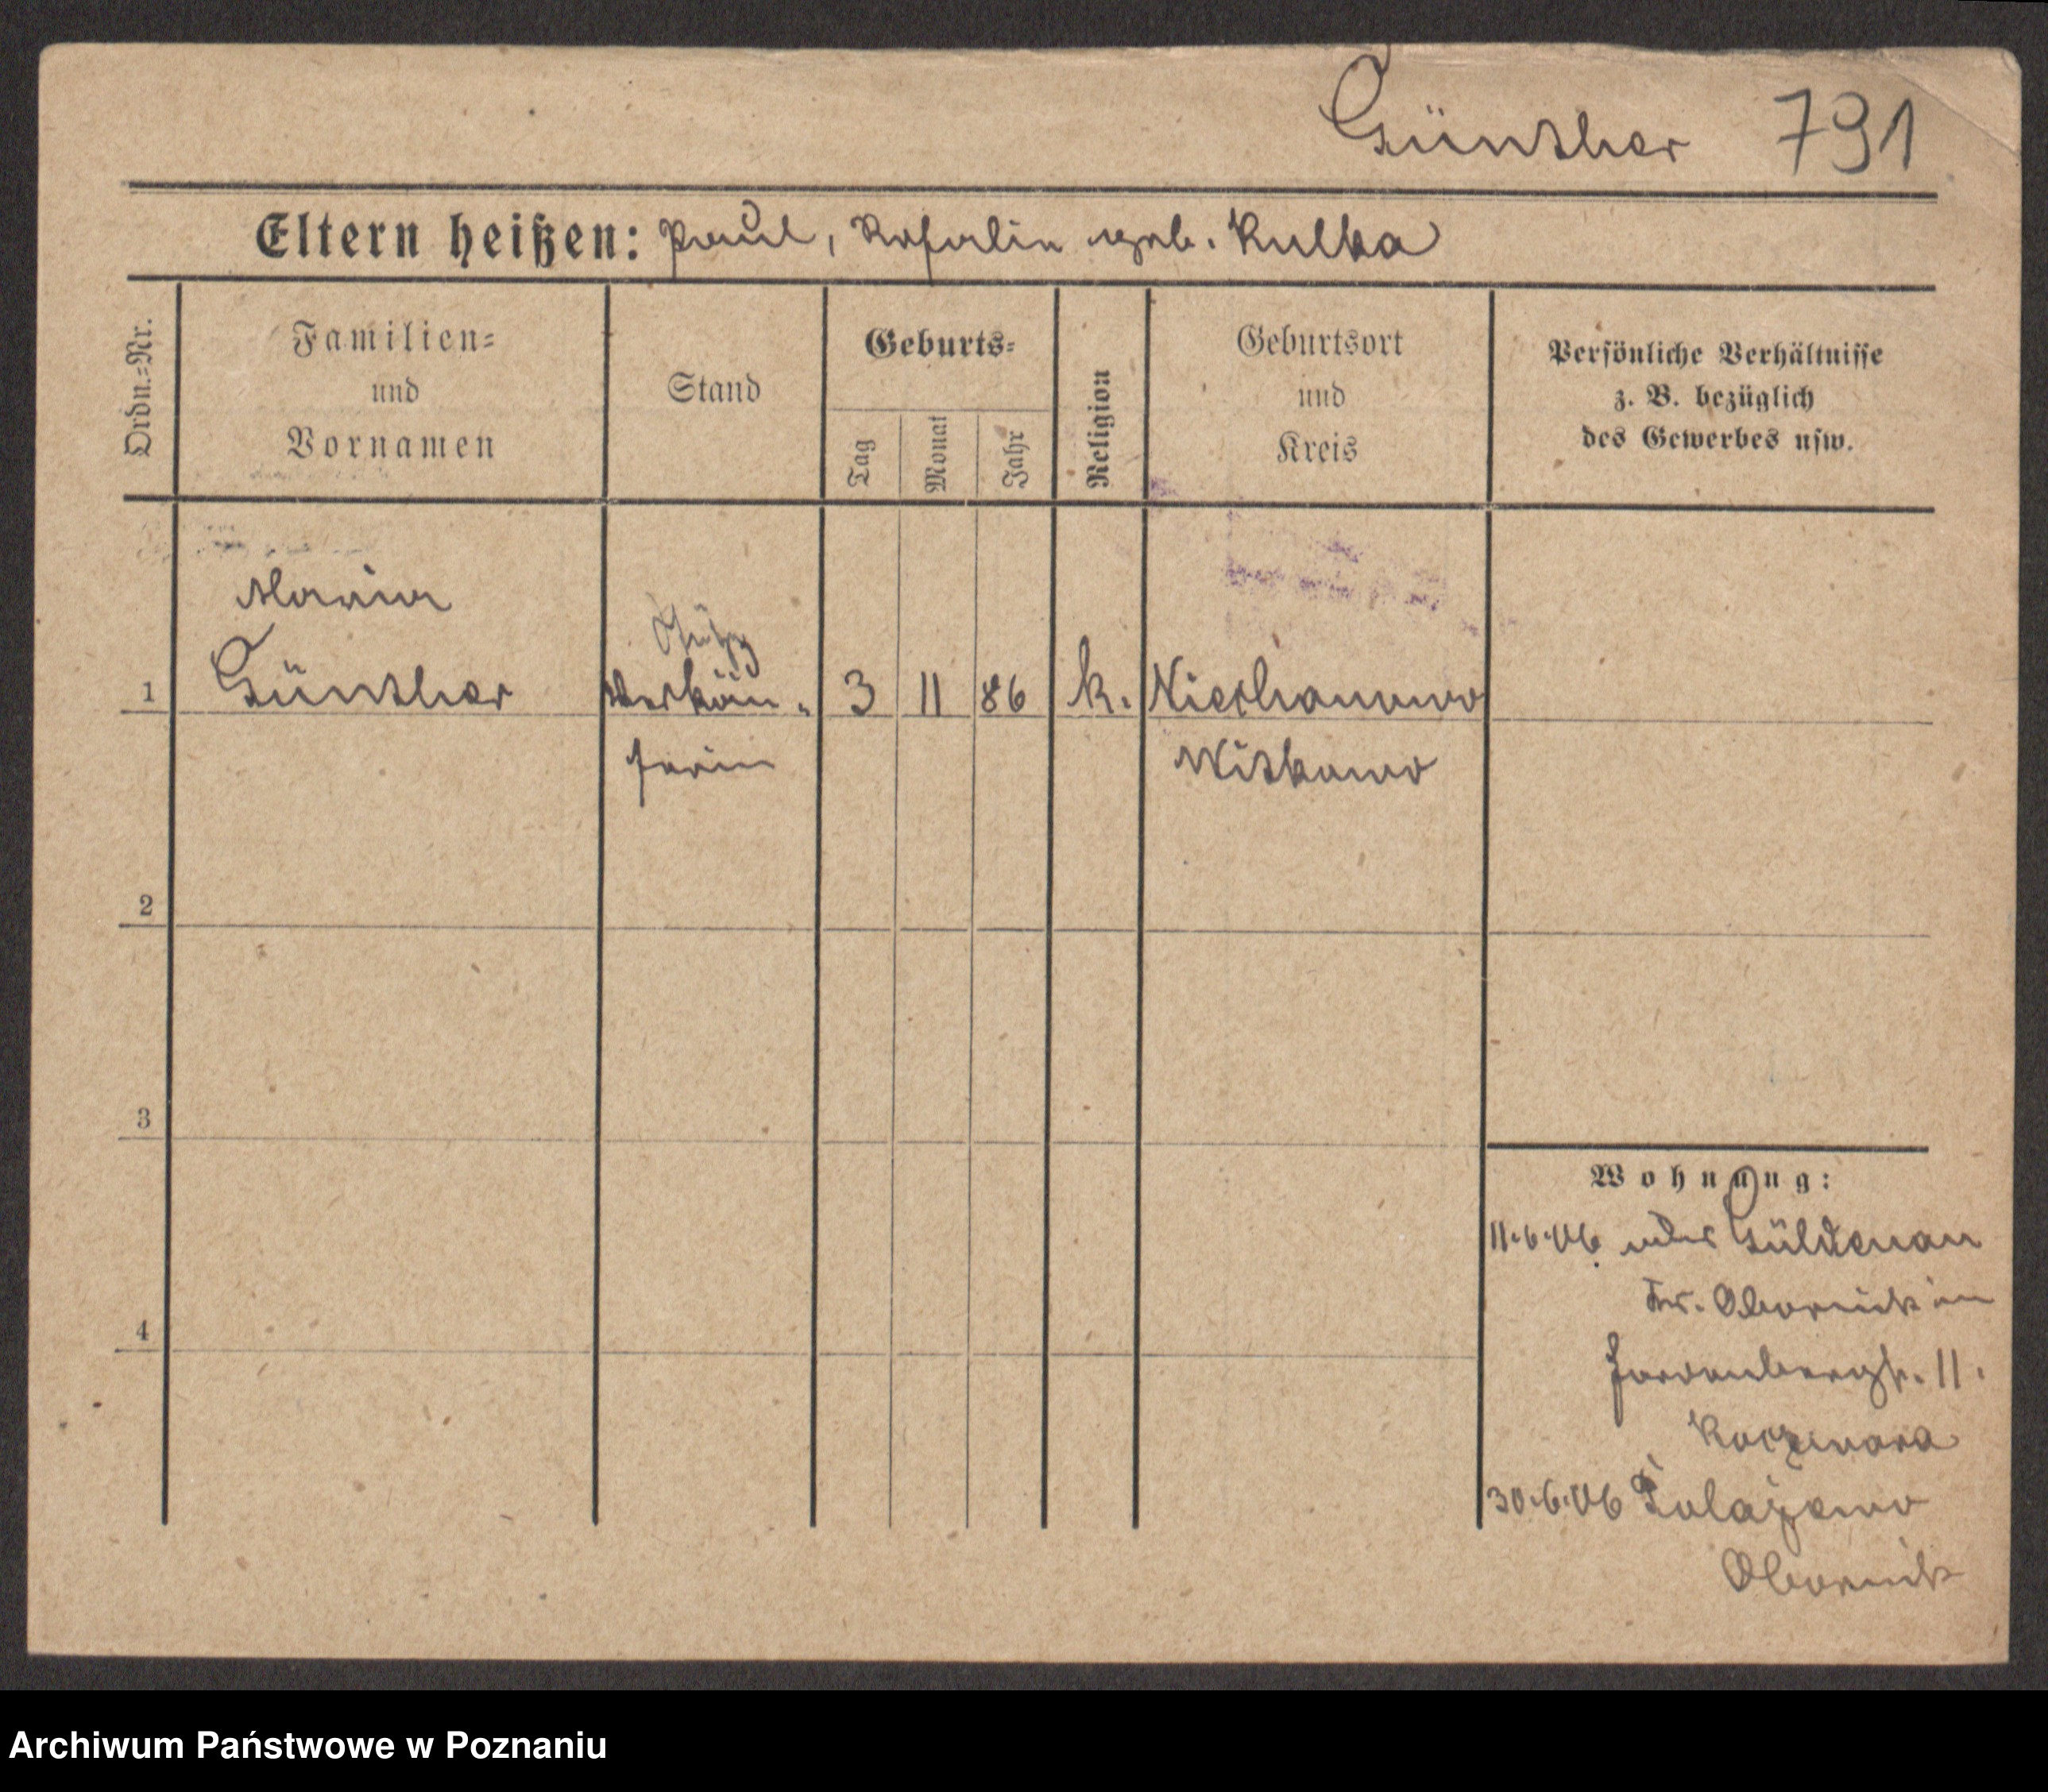 Günther 791
Eltern heißen: Paul, Rosalie geb. Kulka
Ordn.-Nr.
Familien-
und
Vornamen
Stand
Geburts-
Tag
Monat
Jahr
Religion
Geburtsort
und
Kreis
Persönliche Verhältnisse
z. B. bezüglich
des Gewerbes usw.
Maria
Stütze
1 Günther Verkäu- 3 11 86 k. Niechanowo
ferin Witkowo
2
3
4
Wohnung:
11.6.06 Güldenau
Kr. Obornick in
11.
Kaczmara
30.6.06 Polajewo
Obornick
Archiwum Państwowe w Poznaniu